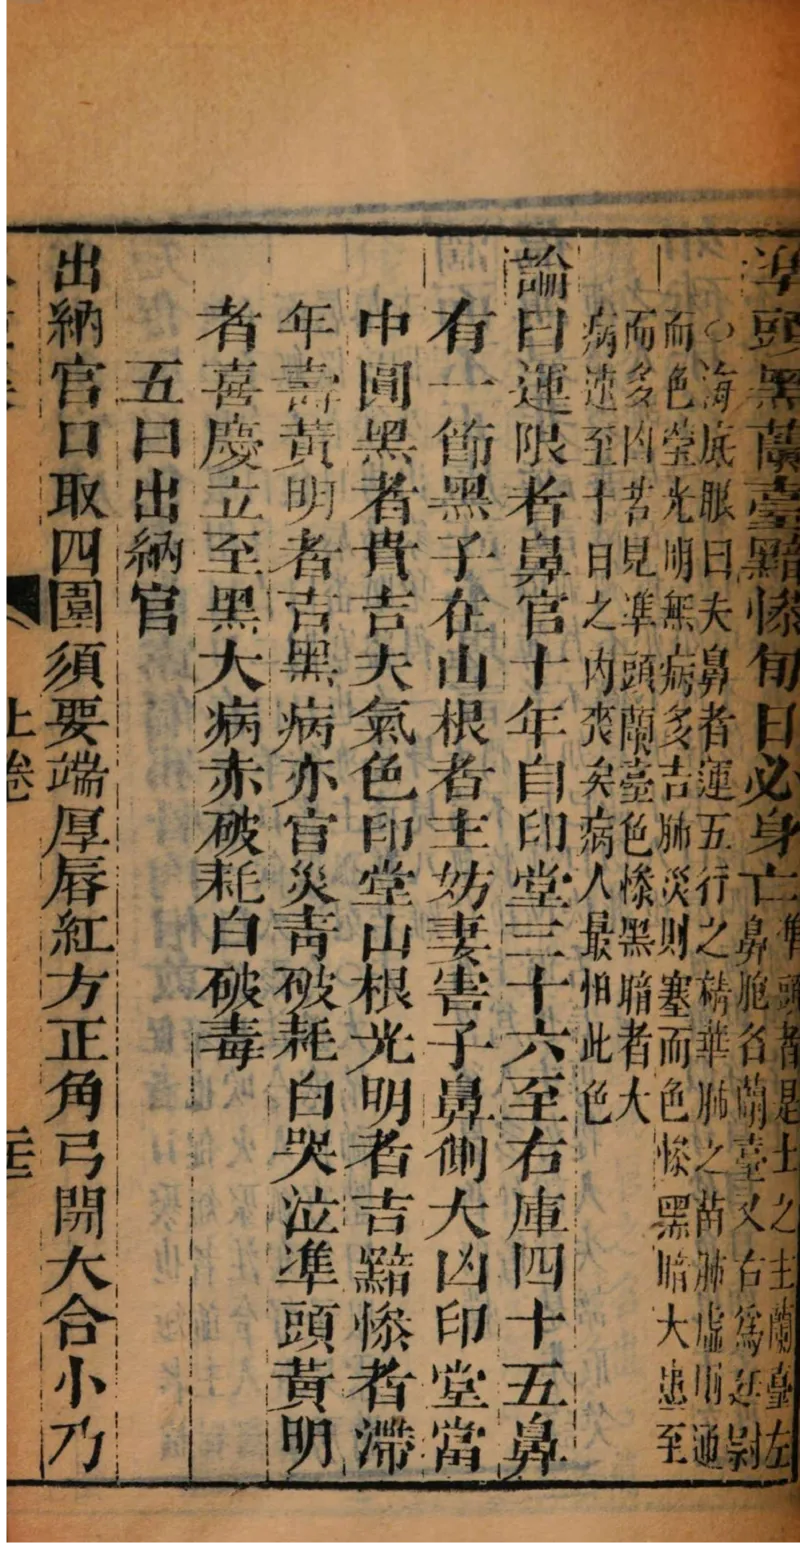 凖頭黑蘭臺黯慘旬日必身亡
凖頭者是土之主蘭臺左
鼻胞名蘭臺又右爲廷尉
〇海底眼曰夫鼻者運五行之精華肺之苗肺虛則通
而色瑩光明無病多吉肺災則塞而色慘黑暗大患至
而多凶若見凖頭蘭臺色慘黑暗者大
病速至十日之內喪矣病人最怕此色
論曰運限者鼻官十年自印堂三十六至右庫四十五鼻
有一節黑子在山根者主妨妻害子鼻側大凶印堂當
中圓黑者貴吉夫氣色印堂山根光明者吉黯慘者滯
年壽黃明者吉黑病亦官災靑破耗白哭泣凖頭黃明
者喜慶立至黑大病赤破耗白破毒
五曰出納官
出納官口取四圍須要端厚唇紅方正角弓開大合小乃
上卷